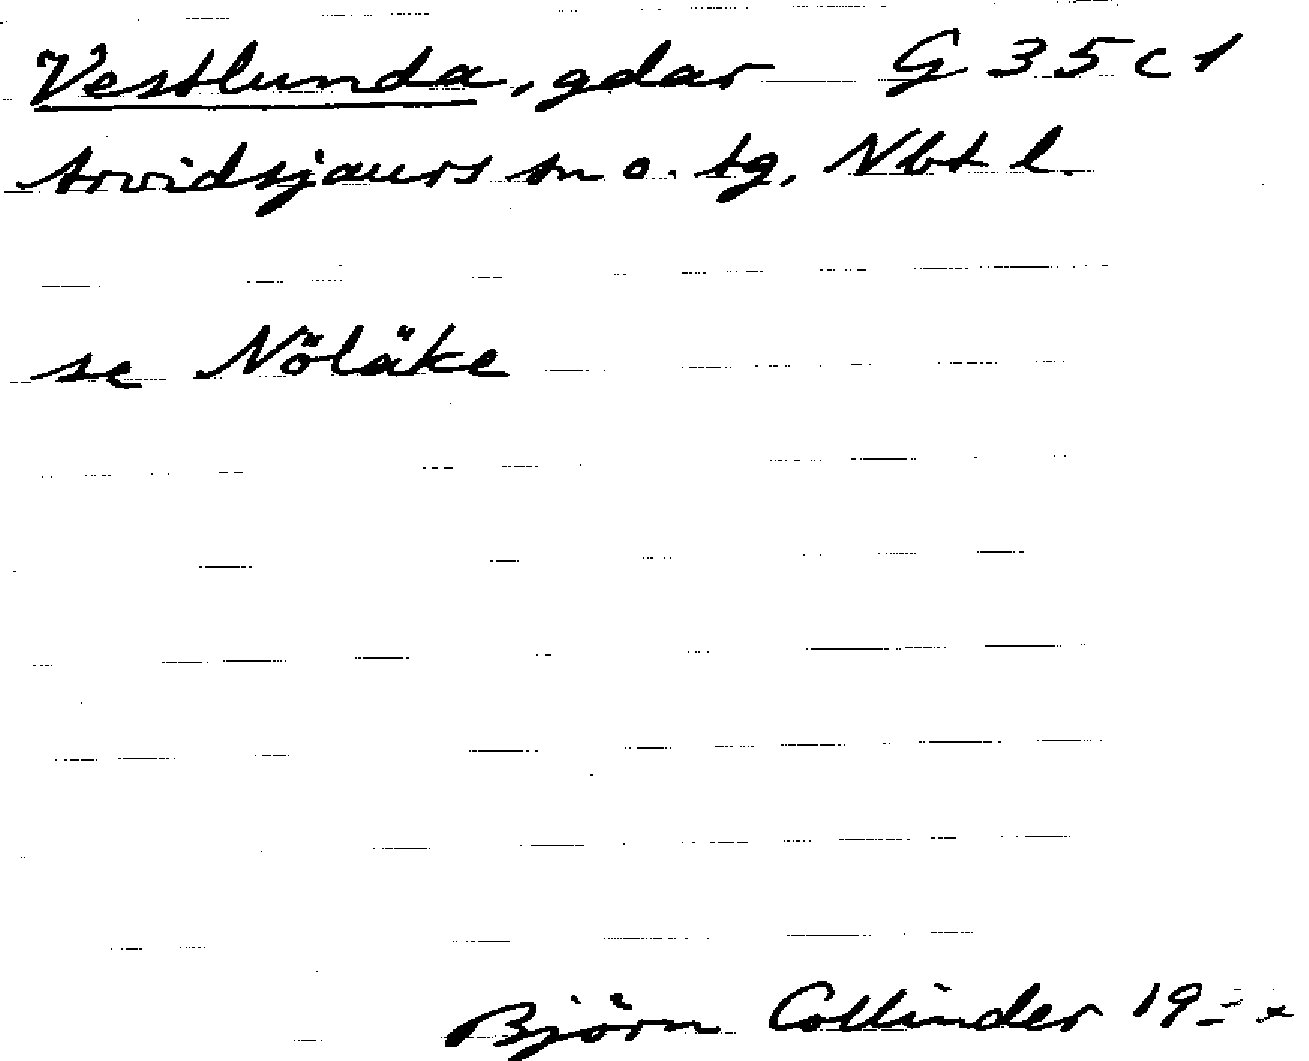 Vestlunda, gdar G 35 c 1
Arvidsjaurs sn o. tg, Nbt l.
se Nöläke
Björn Collinder 19